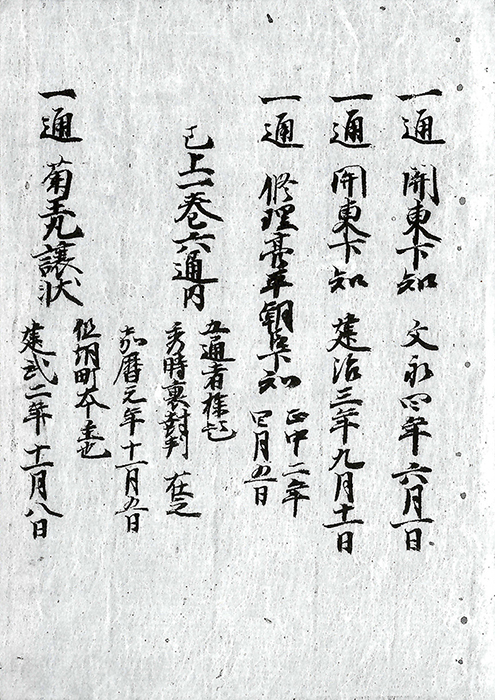 一通 関東下知 文永四年六月一日
一通 関東下知 建治三年九月十一日
一通 修理亮平朝臣下知 正中二年
四月五日
已上一巻六通内
五通者案也
秀時裏封判 在之
嘉暦元年十一月五日
一通 菊王丸譲状
但羽町本主也
建武二年十一月八日